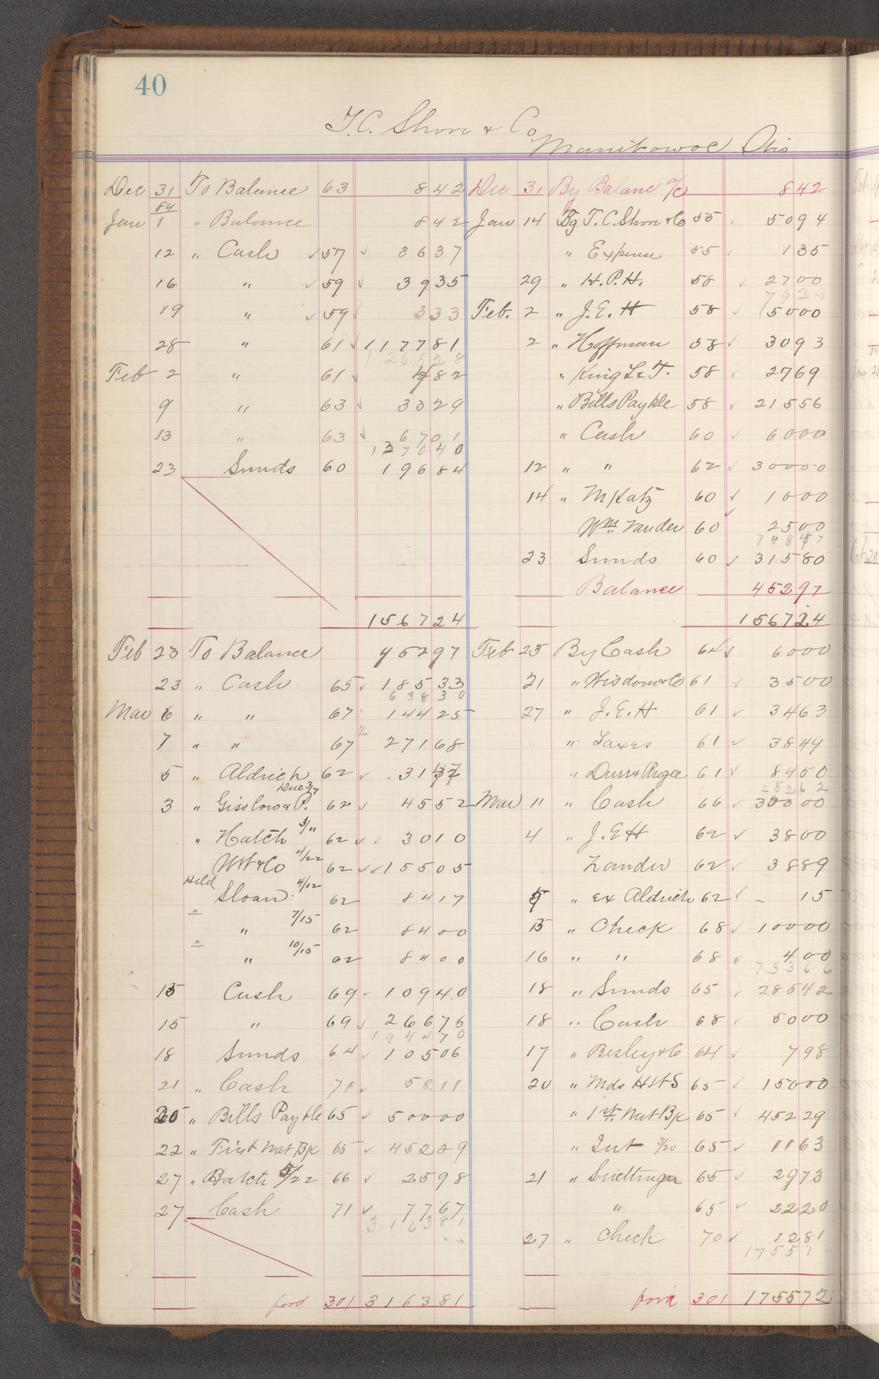 40
T.C. Shove & Co
Manitowoc Wis
Dec 31 To Balance 63 842
84
Jan 1 " Balance 842
12 " Cash ✓57 ✓ 3637
16 " ✓59 ✓ 3935
19 " ✓59 333
28 " 61 ✓ 117781
126528
Feb 2 " 61 ✓ 482
9 " 63 ✓ 3329
13 " 63 ✓ 6701
137040
23 Sunds 60 19684
156724
Feb 23 To Balance 45297
23 " Cash 65 ✓ 18533
63830
Mar 6 " " 67 ✓ 14425
7 " " 67 27168
5 " Aldrich 62 ✓ 3137
Due 3/7
3 " P. 62 ✓ 4552
" Hatch 3/11 62 ✓ 3010
4/22 62 ✓ 15505
Held Sloan 4/12 62 8417
" " 7/15 62 8400
" " 10/15 62 8400
15 Cash 69 10940
15 " 69 ✓ 26676
194470
18 Sunds 64 ✓ 10506
21 " Cash 71 ✓ 5811
20 " Bills Payble 65 ✓ 50000
22 " First Nat Bk 65 ✓ 45229
27 " Hatch 5/22 66 ✓ 2598
27 Cash 71 ✓ 7767
316381
ford 301 316381
Dec 31 By Balance a/c 842
Jan 14 By T.C. Shove & Co 55 ✓ 5094
" Expense 55 ✓ 135
29 " H.P.H. 58 ✓ 2700
7929
Feb. 2 " J.E.H 58 ✓ 5000
2 " Hoffman 58 ✓ 3093
" King L & T. 58 ✓ 2769
" Bills Payble 58 ✓ 21556
" Cash 60 ✓ 6000
12 " " 62 ✓ 30000
14 " M Katz 60 ✓ 1000
Wm Vander 60 ✓ 2500
74847
23 Sunds 60 ✓ 31580
Balance 45297
156724
Feb 25 By Cash 64 ✓ 6000
21 " Wisdom & Co 61 ✓ 3500
27 " J.E.H 61 ✓ 3463
" Taxes 61 ✓ 3849
" 61 ✓ 8450
25262
Mar 11 " Cash 66 ✓ 30000
4 " J.E.H 62 ✓ 3800
Zander 62 ✓ 3889
5 " Ex Aldrich 62 ✓ 15
15 " Check 68 ✓ 10000
16 " " 68 ✓ 400
73366
18 " Sunds 65 ✓ 28542
18 " Cash 68 ✓ 5000
17 " Besley & Co 64 ✓ 798
20 " Mds H & S 65 ✓ 15000
" 1st Nat Bk 65 ✓ 45229
" Int 3/20 65 ✓ 1163
21 " 65 ✓ 2973
" 65 ✓ 2220
27 " Check 70 ✓ 1281
175572
ford 301 175572